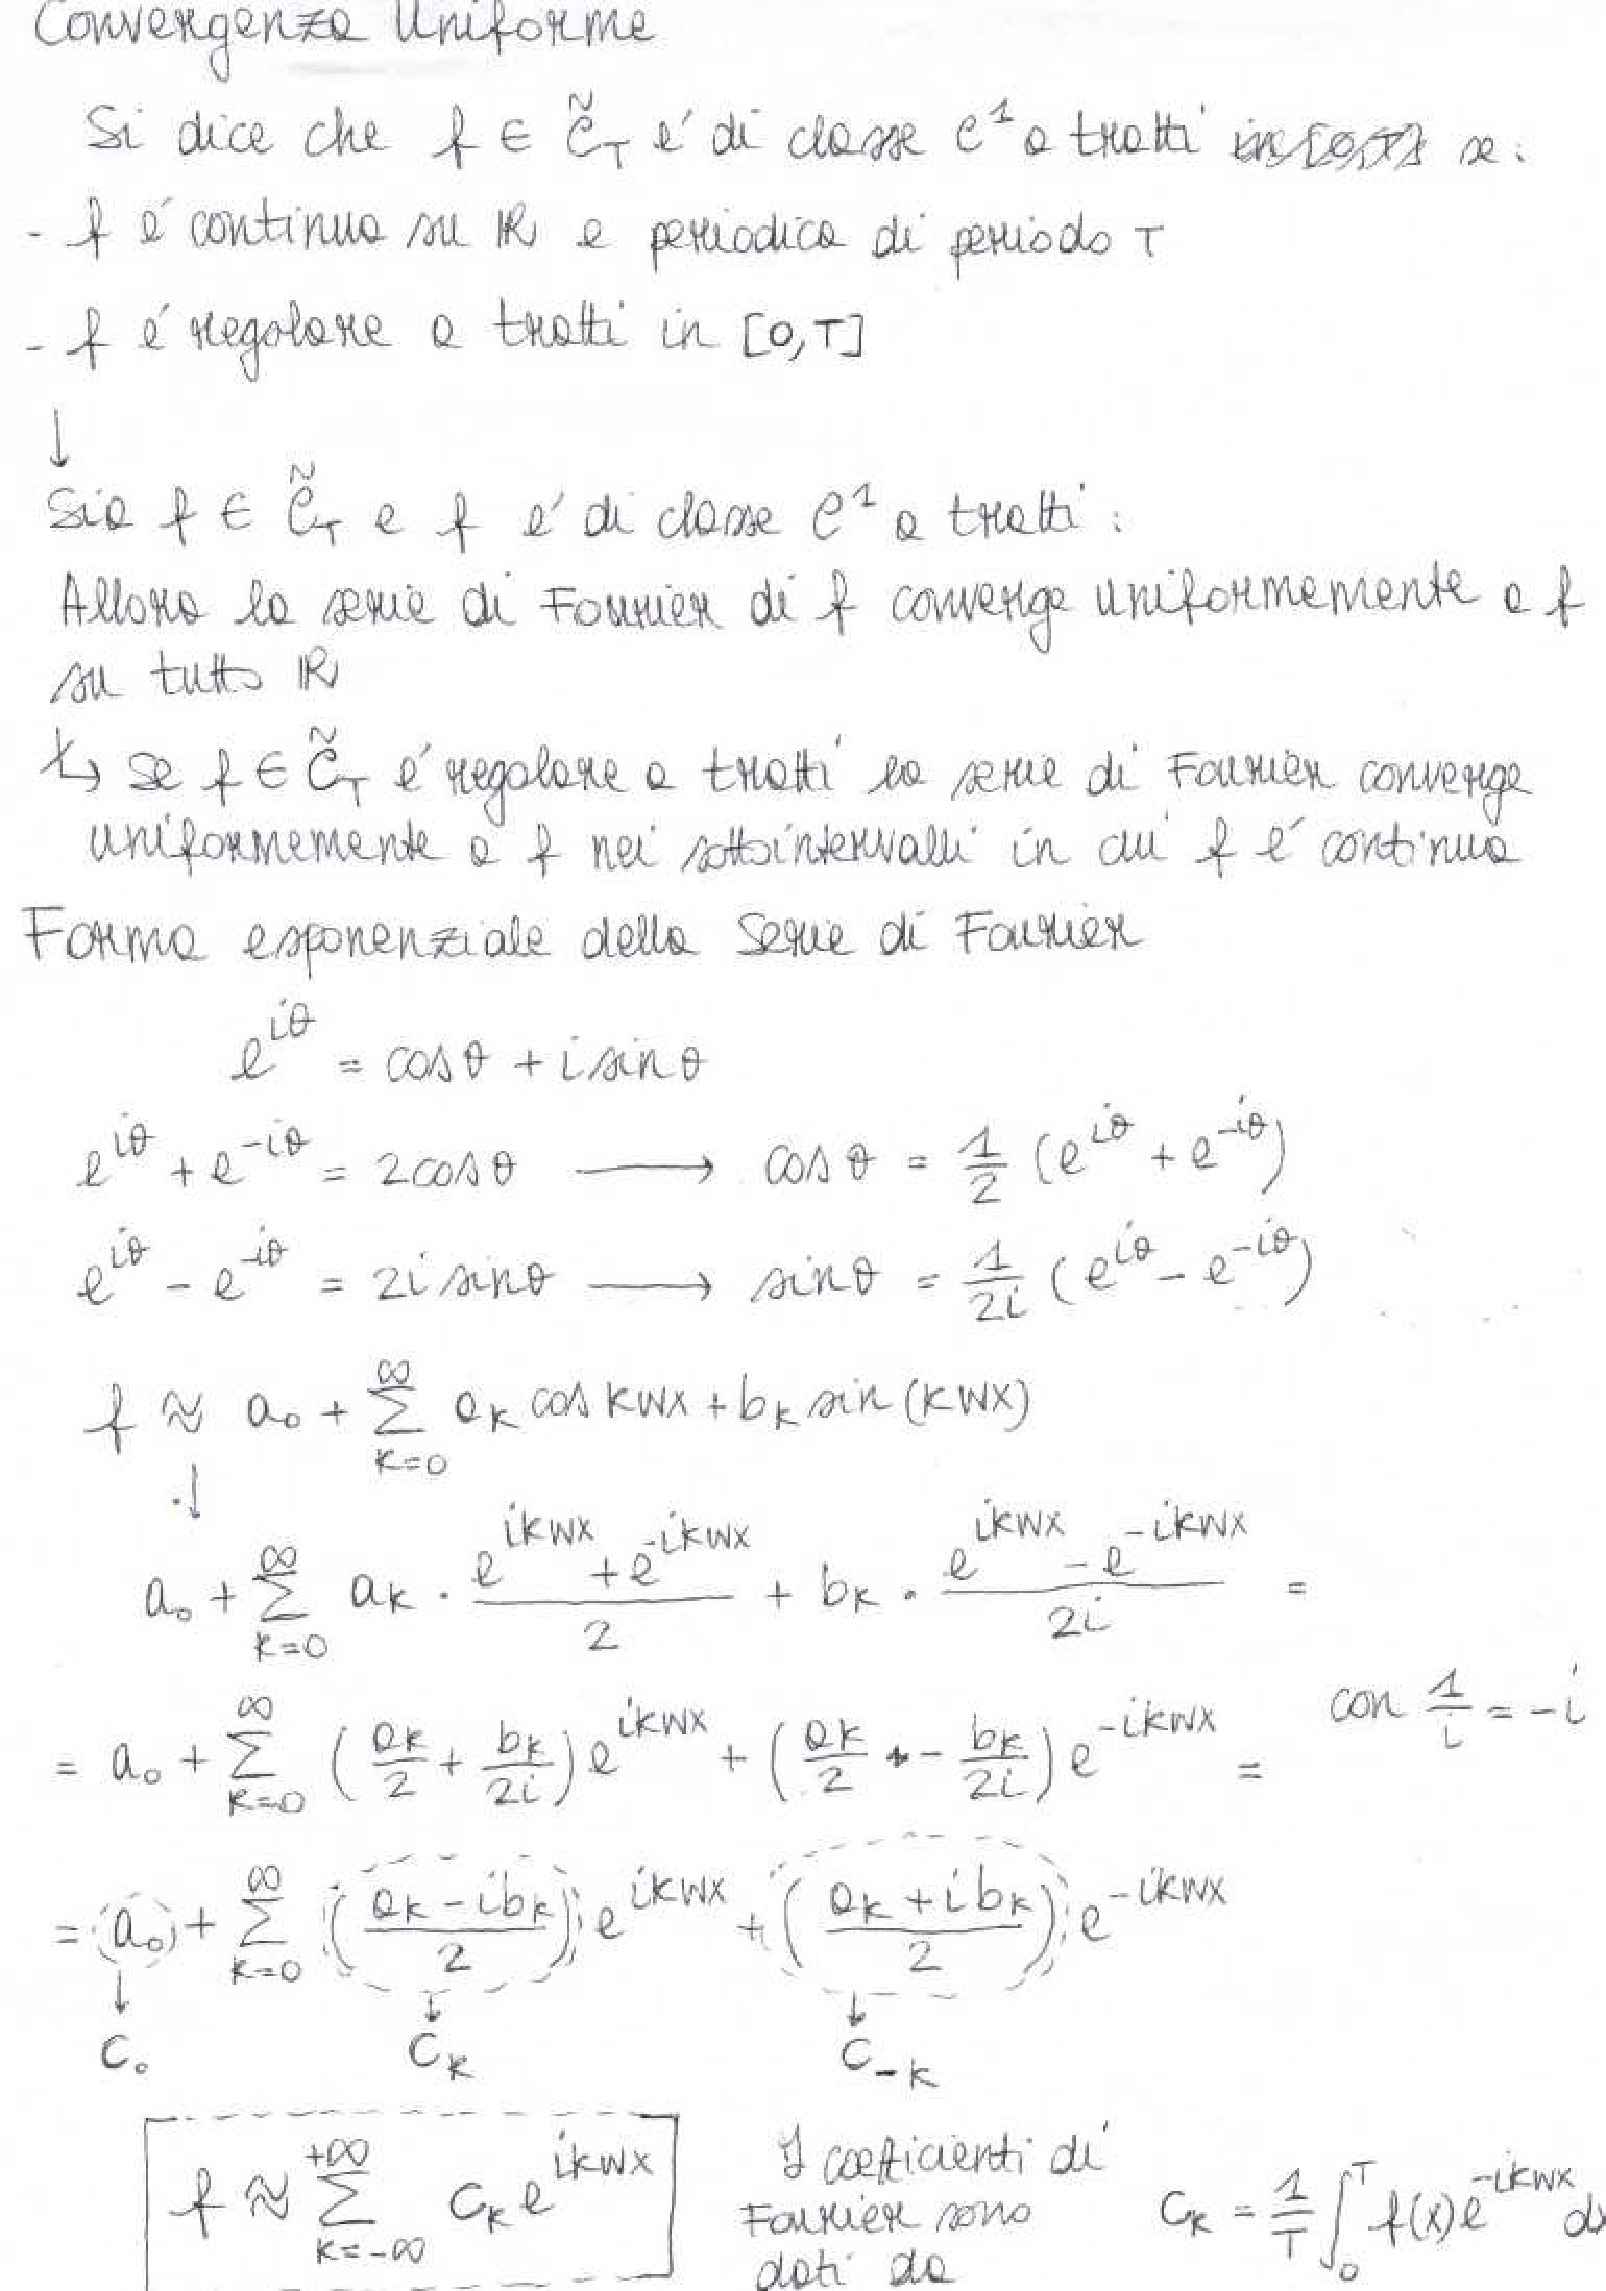 Convergenza Uniforme
Si dice che f ∈ C̃_T é di classe C^1 a tratti se:
- f é continua su ℝ e periodica di periodo T
- f é regolare a tratti in [0,T]
↓
Sia f ∈ C̃_T e f é di classe C^1 a tratti:
Allora la serie di Fourier di f converge uniformemente a f
su tutto ℝ
↳ Se f ∈ C̃_T é regolare a tratti la serie di Fourier converge
uniformemente a f nei sottointervalli in cui f é continua
Forma esponenziale della Serie di Fourier
e^{iθ} = cosθ + i sinθ
e^{iθ} + e^{-iθ} = 2cosθ ⟶ cosθ = 1/2 (e^{iθ} + e^{-iθ})
e^{iθ} - e^{-iθ} = 2i sinθ ⟶ sinθ = 1/2i (e^{iθ} - e^{-iθ})
f ≈ a_0 + ∑_{k=0}^{∞} a_k cos kwx + b_k sin(kwx)
↓
a_0 + ∑_{k=0}^{∞} a_k · (e^{ikwx} + e^{-ikwx})/2 + b_k · (e^{ikwx} - e^{-ikwx})/2i =
= a_0 + ∑_{k=0}^{∞} (a_k/2 + b_k/2i) e^{ikwx} + (a_k/2 - b_k/2i) e^{-ikwx} = con 1/i = -i
= (a_0) + ∑_{k=0}^{∞} ((a_k - ib_k)/2) e^{ikwx} + ((a_k + ib_k)/2) e^{-ikwx}
↓ ↓ ↓
C_0 C_k C_{-k}
f ≈ ∑_{k=-∞}^{+∞} C_k e^{ikwx}
I coefficienti di
Fourier sono
dati da
C_k = 1/T ∫_0^T f(x) e^{-ikwx} dx